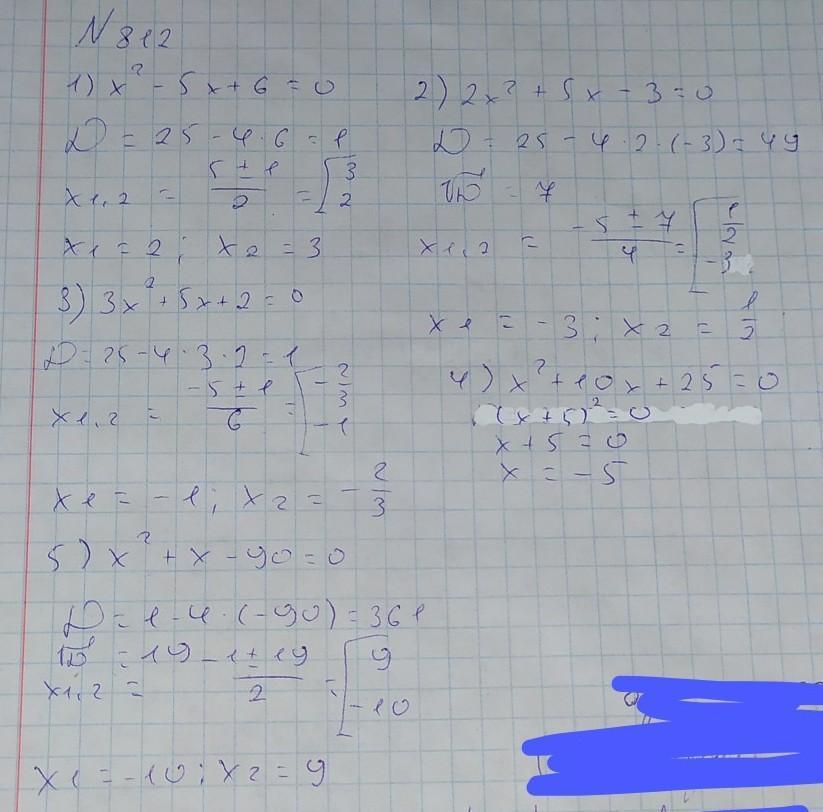 N 812
1) x² - 5x + 6 = 0
D = 25 - 4·6 = 1
x1,2 = (5 ± 1)/2 = [3 2
x1 = 2; x2 = 3
2) 2x² + 5x - 3 = 0
D = 25 - 4·2·(-3) = 49
√D = 7
x1,2 = (-5 ± 7)/4 = [1/2 -3
x1 = -3; x2 = 1/2
3) 3x² + 5x + 2 = 0
D = 25 - 4·3·2 = 1
x1,2 = (-5 ± 1)/6 = [-2/3 -1
x1 = -1; x2 = -2/3
4) x² + 10x + 25 = 0
(x+5)² = 0
x + 5 = 0
x = -5
5) x² + x - 90 = 0
D = 1 - 4·(-90) = 361
√D = 19
x1,2 = (-1 ± 19)/2 = [9 -10
x1 = -10; x2 = 9